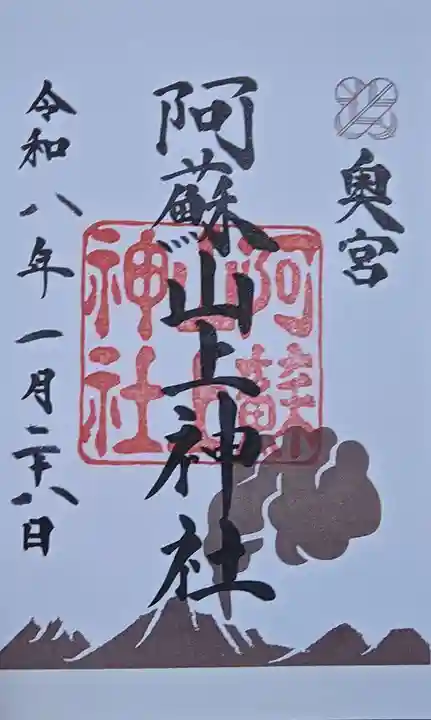 奥宮
阿蘇山上神社
令和八年一月二十八日
阿蘇
山上
神社